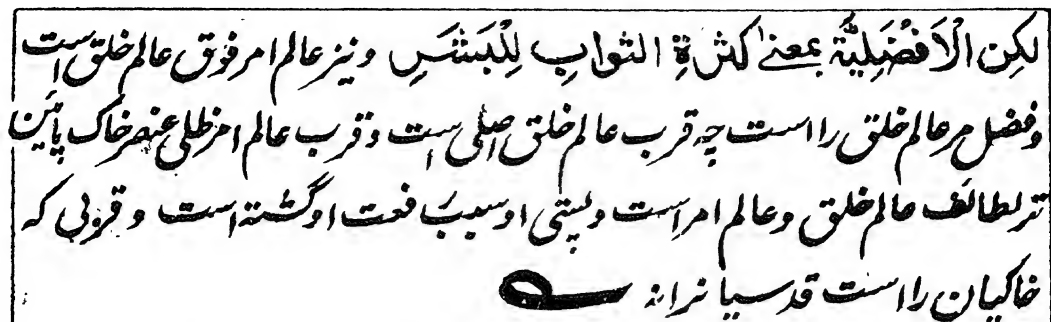 لكِن الْاَفْضَلِيَّة بمعنے كثرةِ الثوابِ لِلْبَشَرِ و نیز عالم امر فوق عالم خلق است
و فضل مر عالم خلق را است چه قرب عالم خلق اصلی است و قرب عالم امر ظلی عنصر خاک پائین
تر لطائف عالم خلق و عالم امر است و پستی او سبب رفعت او گشته است و قربی که
خاکیان را است قدسیانرا نه